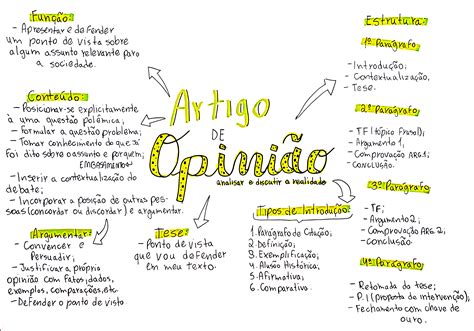 Função:
- Apresentar e defender
um ponto de vista sobre
algum assunto relevante para
a sociedade.
Conteúdo:
- Posicionar-se explicitamente
à uma questão polêmica;
- Formular a questão problema;
- Tomar conhecimento do que já
foi dito sobre o assunto e por quem;
EMBASAMENTO
- Inserir a contextualização do
debate;
- Incorporar a posição de outras pes-
soas (concordar ou discordar) e argumentar.
Argumentar:
- Convencer e
Persuadir;
- Justificar a própria
opinião com fatos, dados,
exemplos, comparações, etc
- Defender o ponto de vista
Artigo
DE
Opinião
analisar e discutir a realidade
Tese:
- Ponto de vista
que vou defender
em meu texto.
Tipos de Introdução:
1. Parágrafo de Citação;
2. Definição;
3. Exemplificação;
4. Alusão Histórica;
5. Afirmativa;
6. Comparativa.
Estrutura:
1º Parágrafo
- Introdução;
- Contextualização;
- Tese.
2º Parágrafo
- TF (tópico frasal);
- Argumento 1;
- Comprovação ARG.1;
- Conclusão.
3º Parágrafo
- TF;
- Argumento 2;
- Comprovação ARG.2;
- conclusão.
4º Parágrafo
- Retomada da tese;
- P.I (proposta de intervenção);
- Fechamento com chave de
ouro.